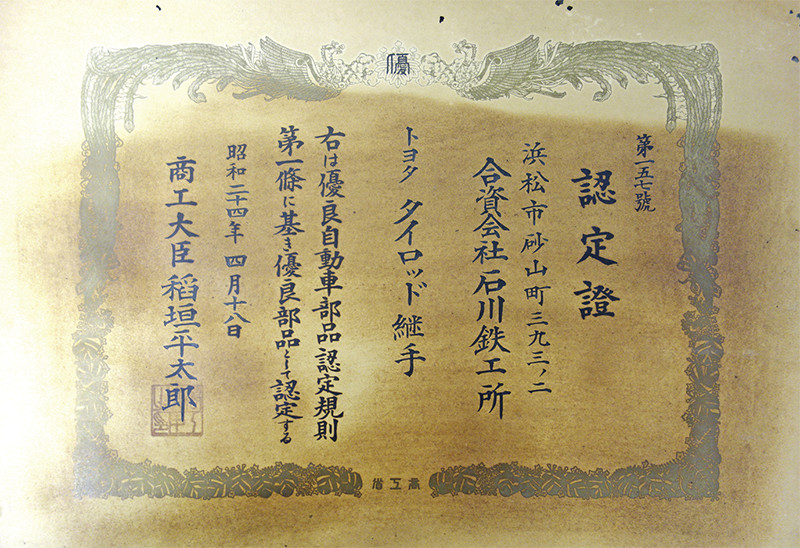 優
第一五七號
認定證
浜松市砂山町三九三ノ二
合資会社石川鉄工所
トヨタ タイロッド継手
右は優良自動車部品認定規則
第一條に基き優良部品として認定する
昭和二十四年 四月十八日
商工大臣 稻垣平太郎
商工省